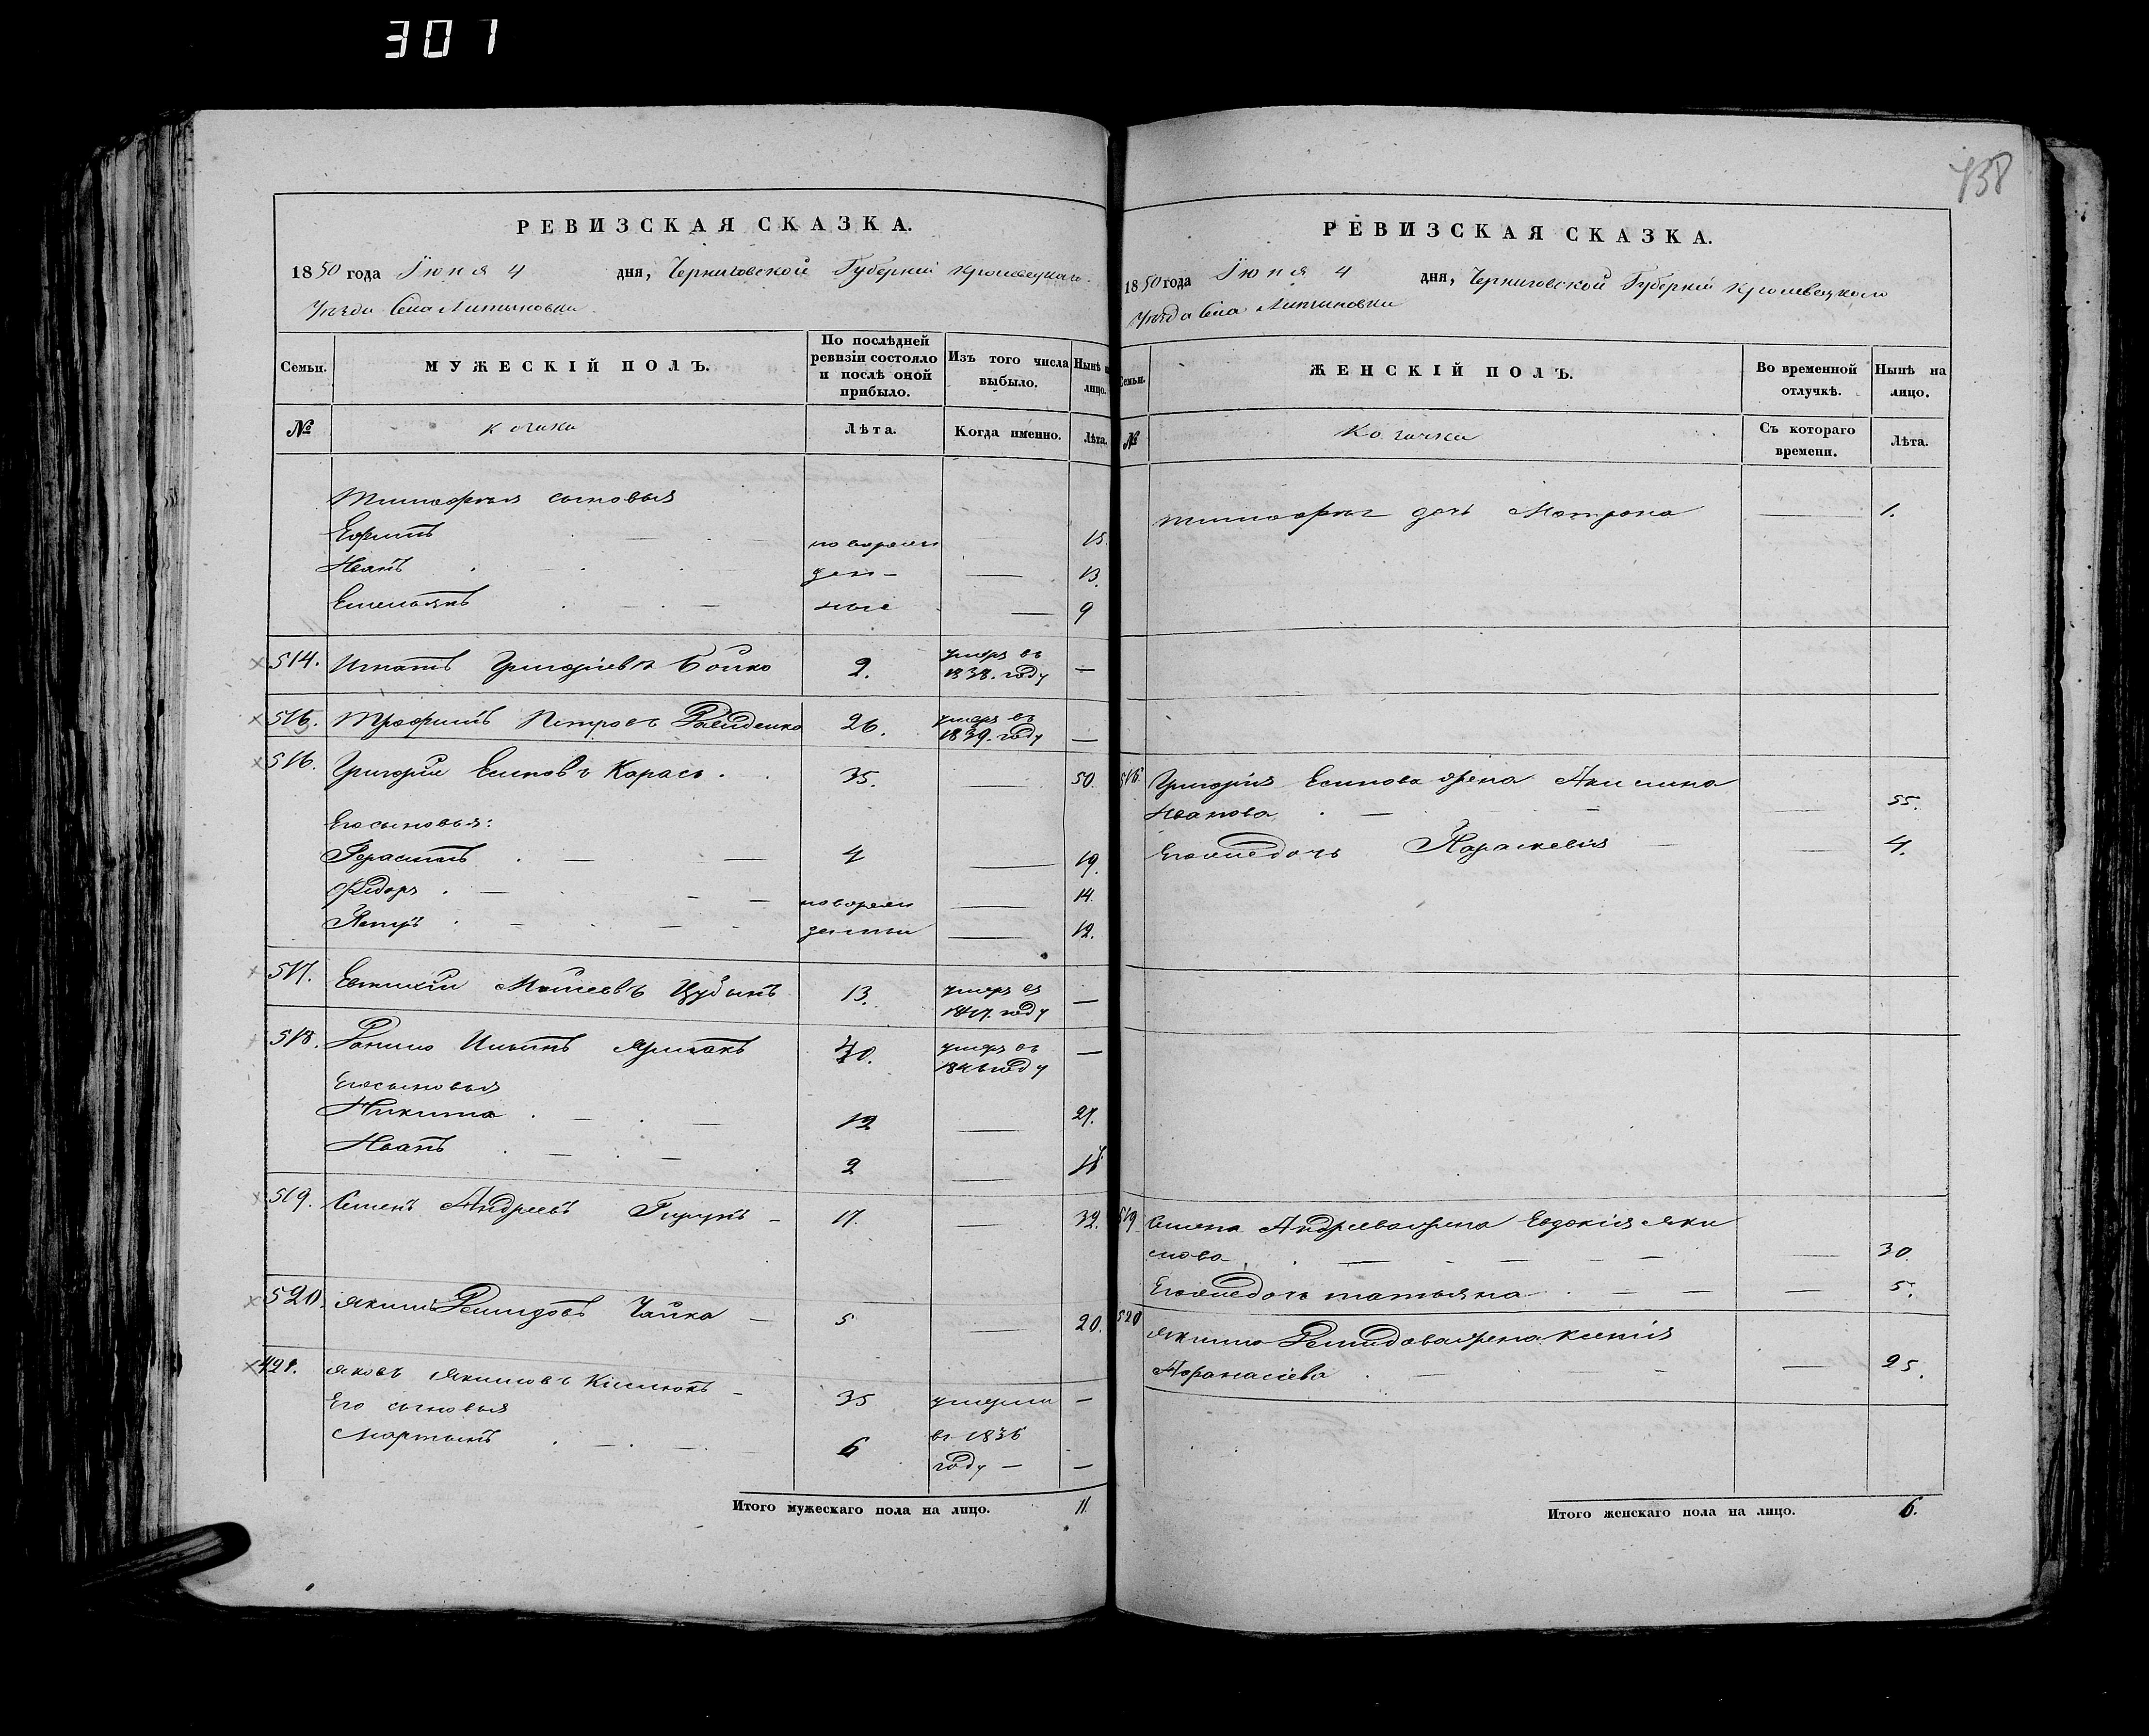 307
738
РЕВИЗСКАЯ СКАЗКА.
1850 года Іюня 4 дня, Черниговской Губерніи Кролевецкаго
Уѣзда Села
Семьи.
МУЖЕСКІЙ ПОЛЪ.
По послѣдней ревизіи состояло и послѣ оной прибыло.
Изъ того числа выбыло.
Нынѣ на лицо.
№
Лѣта.
Когда именно.
Лѣта.
Тимофѣя сыновья
Ефимъ новорож 15.
Иванъ ден- — 13.
Емельянъ ные — 9
514. Игнатъ Григоріевъ Бойко 2. умеръ въ 1838. году —
515. Трофимъ Петровъ 26. умеръ въ 1839. году —
516. Григорій Есиповъ Карась. 35. — 50.
Его сыновья:
Герасимъ 4 — 19.
Федоръ новорож — 14.
Петръ денные — 12.
517. Евтихій Моисеевъ 13. умеръ въ 1847. году —
518. Данило Ильинъ 40. умеръ въ 1846 году —
Его сыновья
Никита 12 — 27.
Иванъ 2 — 17
519. Семенъ Андреевъ 17. — 32.
520. Якимъ Демидовъ Чайка 5 — 20.
421. Яковъ Якимовъ 35 умерли —
Его сыновья
Мартынъ 6 въ 1836 году — —
Итого мужескаго пола на лицо. 11.
РЕВИЗСКАЯ СКАЗКА.
1850 года Іюня 4 дня, Черниговской Губерніи Кролевецкаго
Уѣзда Села
Семьи.
ЖЕНСКІЙ ПОЛЪ.
Во временной отлучкѣ.
Нынѣ на лицо.
№
Съ котораго времени.
Лѣта.
Тимофѣя дочь Матрона — 1.
516 Григорія Есипова жена Акилина
Иванова — 55.
Его же дочь Параскевія — 4.
519 Семена Андреева жена Евдокія Яки
мова — 30.
Его же дочь Татьяна — 5.
520 Якима Демидова жена Ксенія
Афанасіева — 25.
Итого женскаго пола на лицо. 6.